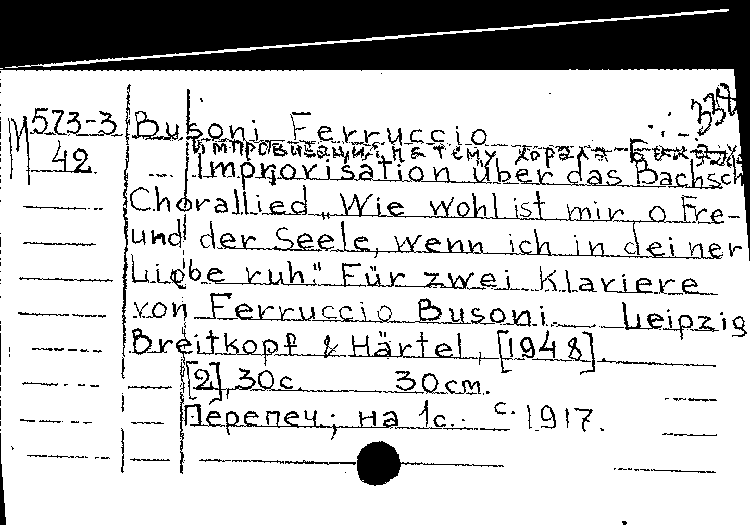 338
М 573-3 Busoni Ferruccio
42
импровизация на тему хорала Баха
Improvisation über das Bachsch
Chorallied „Wie wohl ist mir, o Fre-
und der Seele, wenn ich in deiner
Liebe ruh." Für zwei Klaviere
von Ferruccio Busoni. Leipzig
Breitkopf & Härtel, [1948].
[2], 30 с. 30 cm.
Перепеч.; на 1с.: с. 1917.